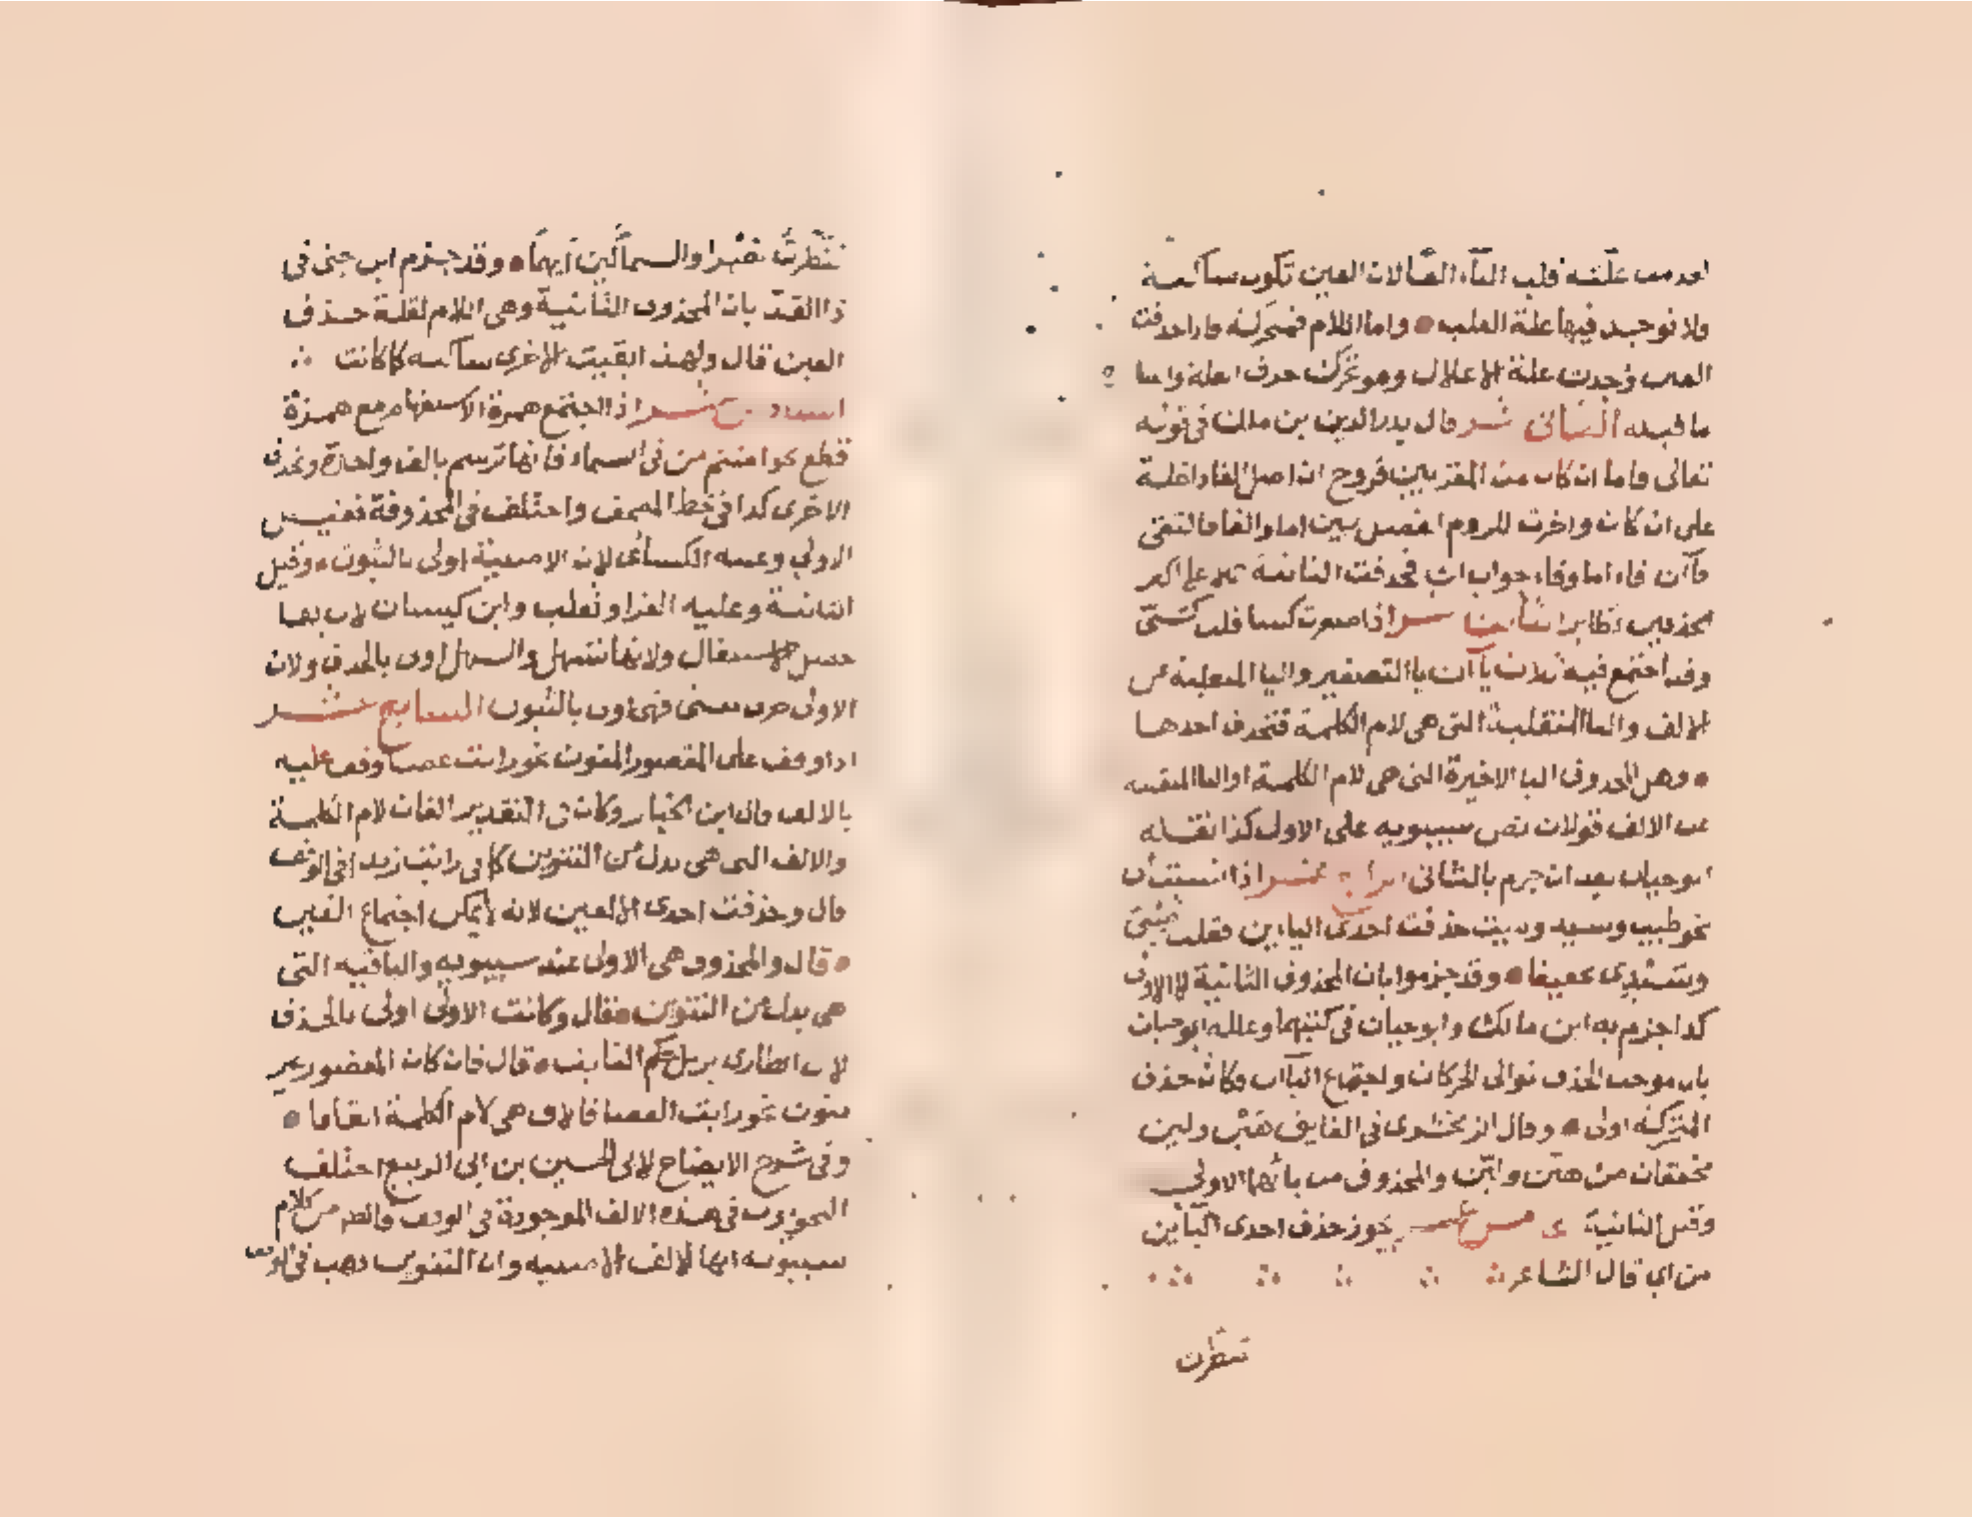 علته قلب الياء الفا لان العين تكون ساكنة
ولا توجد فيها علة القلب واما اللام فمتحركة فاذا حذفت
العين وجدت علة الاعلال وهو تحرك حرف العلة وانفتاح
ما قبله الثاني عشر قال بدر الدين بن ملك في قوله
تعالى واما ان كان من المقربين فروح ان اصل الفاء داخلة
على ان كان واخرت للزوم الفصل بين اما والفا فالتقى
فاآن فاء اما وفاء جواب ان فحذفت الثانية على اكثر
الحذفين نظائر الثالث عشر اذا صغرت كسا قلت كسيّ
وقد اجتمع فيه ثلاث يا آت يا التصغير واليا المنقلبة عن
الالف واليا المنقلبة التي هي لام الكلمة فتحذف احدها
وهل المحذوف اليا الاخيرة التي هي لام الكلمة او اليا المنقلبة
عن الالف قولان نص سيبويه على الاول كذا نقله
ابو حيان بعد ان جزم بالثاني الرابع عشر اذا نسبت الى
نحو طيب وسيد وميت حذفت احدى الياءين فقلت
وقد جزموا بان المحذوف الثانية لا الاولى
كذا جزم به ابن مالك وابو حيان في كتبهما وعلله ابو حيان
بان موجب الحذف توالى الحركات واجتماع اليآت وكان حذف
المتحركة اولى وقال الزمخشرى في الفايق هين ولين
مخففان من هيّن وليّن والمحذوف من يائهما الاولى
وقيل الثانية الخامس عشر يجوز حذف احدى اليأين
من اي قال الشاعر
تنظرت
تنظّرتُ نصرا والسماكين أيهما وقد جزم ابن جنى في
ذا القد بان المحذوف الثانية وهي اللام لقلة حذف
العين قال ولهذا بقيت الاخرى ساكنة كما كانت
السادس عشر اذا اجتمع همزة الاستفهام مع همزة
قطع نحو امنتم من في السماء فانها ترسم بالف واحدة وتحذف
الاخرى كذا في خط المصحف واختلف في المحذوفة فقيل
الاولى وعليه الكسائى لان الاصلية اولى بالثبوت وقيل
الثانية وعليه الفرا وثعلب وابن كيسان لان بها
حصل الاستثقال ولانها تسهل والمسهل اولى بالحذف ولان
الاولى حرف معنى فهي اولى بالثبوت السابع عشر
اذا وقف على المقصور المنون نحو رايت عصا وقف عليه
بالالف قال ابن الخباز وكان في التقدير الفان لام الكلمة
والالف التى هي بدل من التنوين كما في رايت زيدا في الوقف
قال وحذفت احدى الالفين لانه لا يمكن اجتماع الفين
قال والمحذوف هي الاولى عند سيبويه والباقية التى
هي بدل من التنوين فقال وكانت الاولى اولى بالحذف
لان الطارى يزيل حكم الثابت قال فان كان المقصور غير
منون نحو رايت العصا فالالف هي لام الكلمة اتفاقا
وفي شرح الايضاح لابى الحسين بن ابي الربيع اختلف
النحويون في هذه الالف الموجودة في الوقف من كلام
سيبويه انها الالف الاصلية وان التنوين ذهب في الوقف